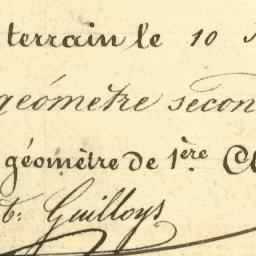 terrain le 10
géométre secon
géomètre de 1ère Cl
t: Guilloys